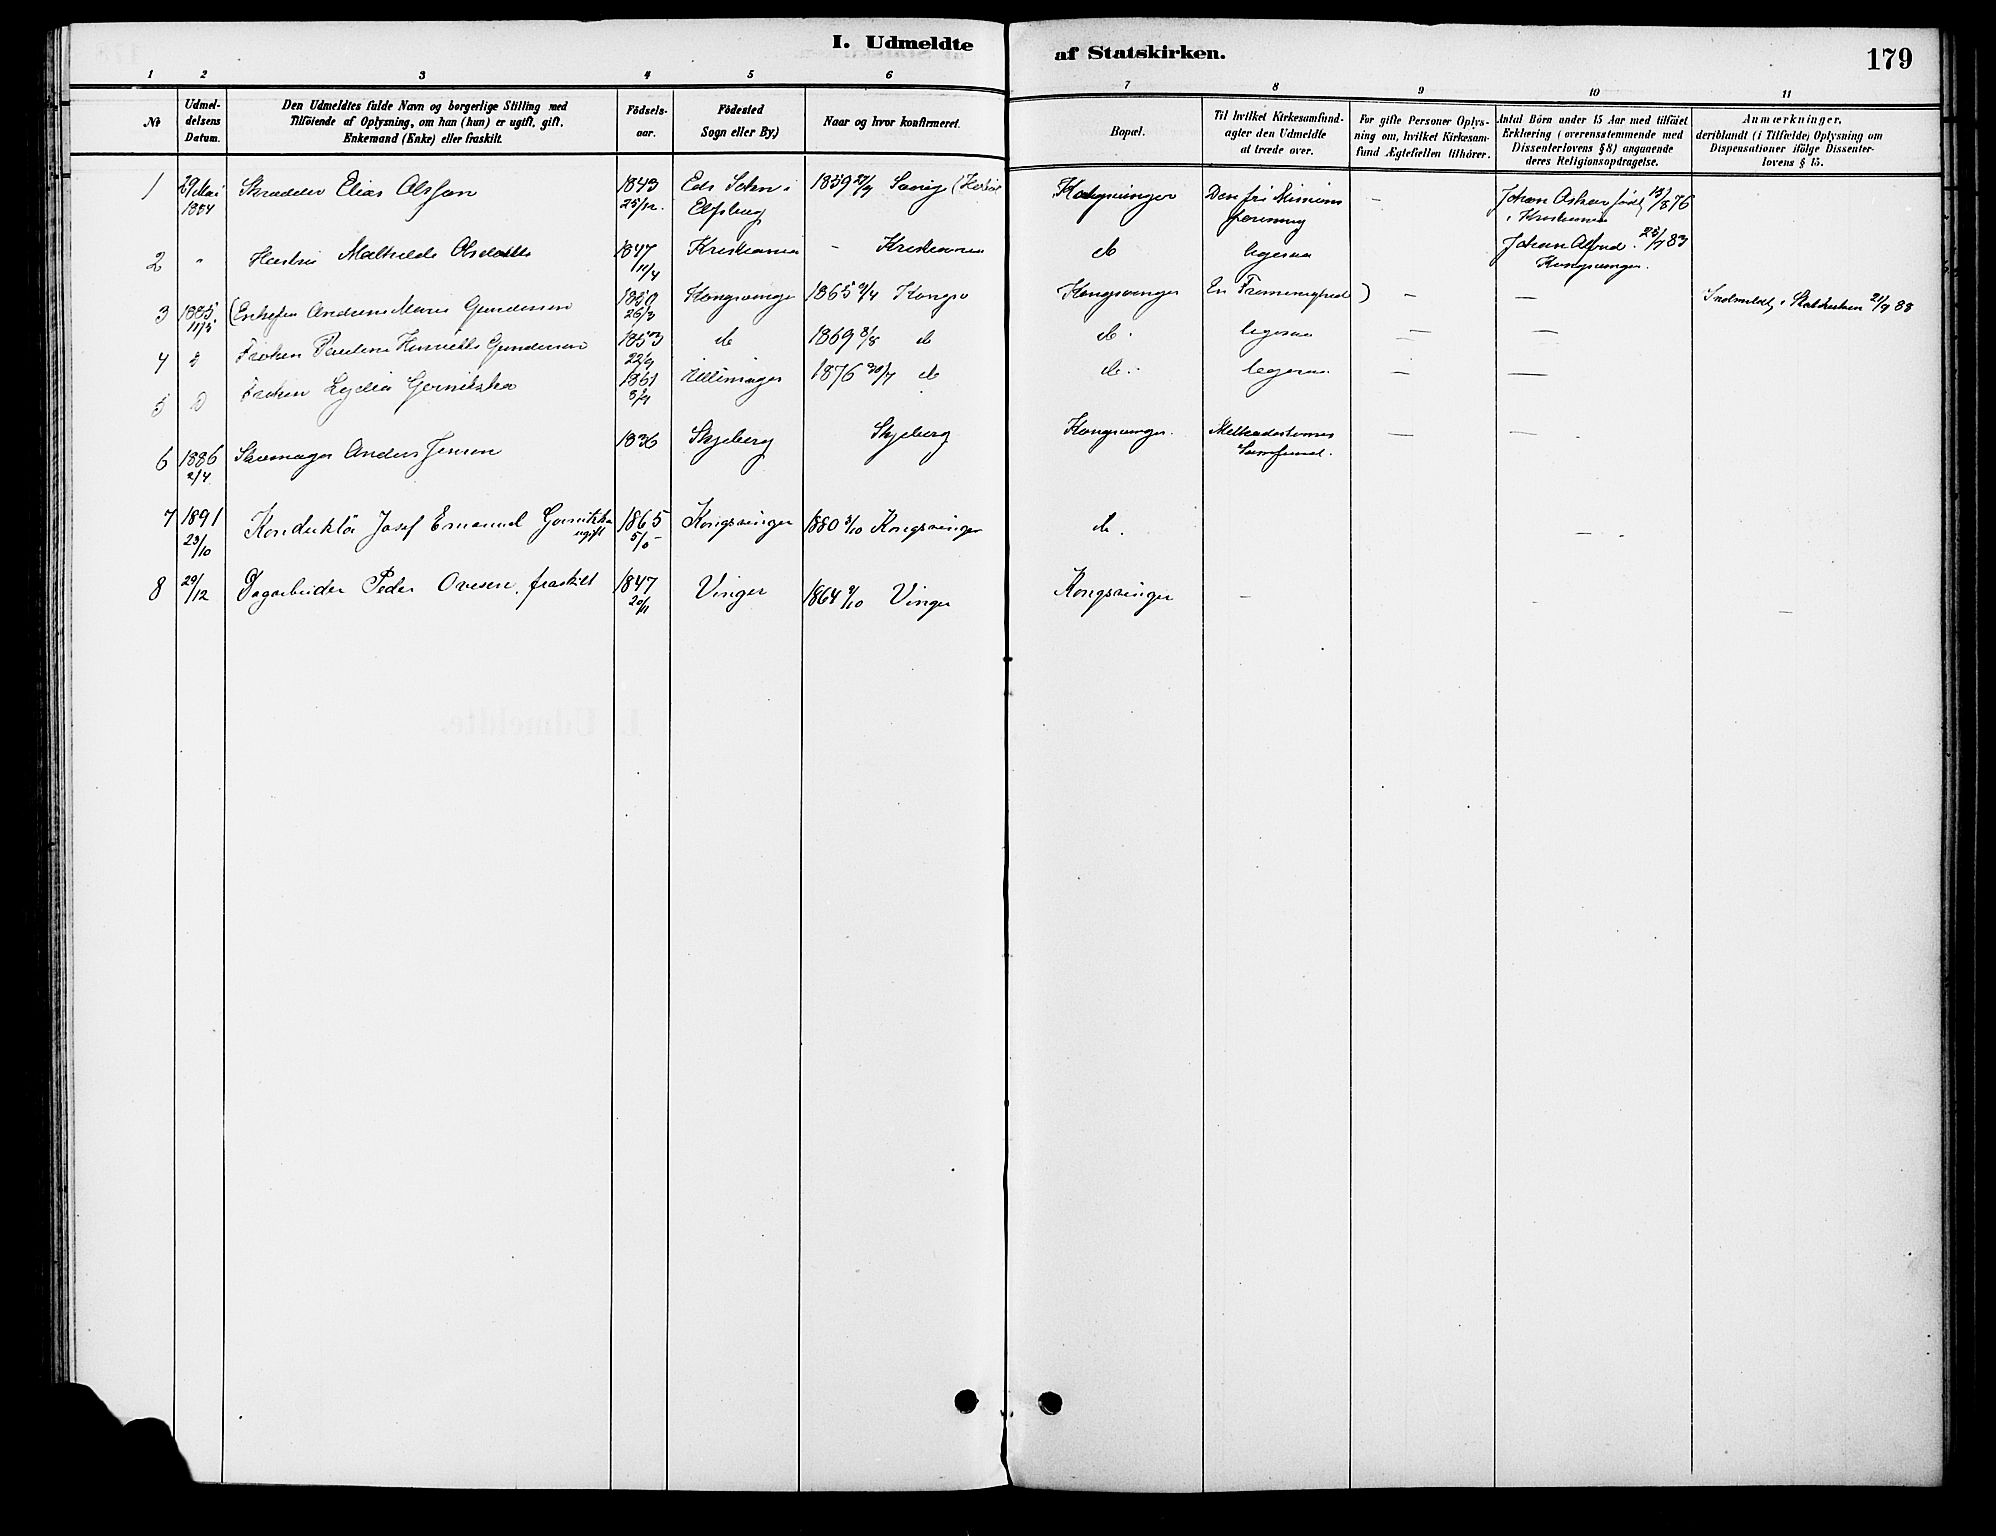 I. Udmeldte af Statskirken.
179
1 2 3 4 5 6 7 8 9 10 11
No
Udmel-
delsens
Datum.
Den Udmeldtes fulde Navn og borgerlige Stilling med
Tilföiende af Oplysning, om han (hun) er ugift, gift,
Enkemand (Enke) eller fraskilt.
Födsels-
aar.
Födested
Sogn eller By.)
Naar og hvor konfirmeret.
Bopæl.
Til hvilket Kirkesamfund-
agter den Udmeldte
at træde over.
For gifte Personer Oplys-
ning om, hvilket Kirkesam-
fund Ægtefællen tilhörer.
Antal Börn under 15 Aar med tilföiet
Erklæring (overensstemmende med
Dissenterlovens § 8) angaaende
deres Religionsopdragelse.
Anmærkninger,
deriblandt (i Tilfælde) Oplysning om
Dispensationer ifölge Dissenter-
lovens § 15.
1 1884 Skrædder Elias Olsson 1843 25/12 Elfsborg 1859 Kongsvinger Den fri Missions forening – Johan Oskar född 13/8 76 i Kristiania
2 " Hustru Mathilde Olsdatter 1847 11/4 Kristiania – Kristiania do ligesaa Johan Alfred 25/7 83 Kongsvinger
3 1885 11/5 (Enkefru Andrine Marie Gundersen 1850 26/3 Kongsvinger 1865 Kongsv Kongsvinger En Frimenighed ) – – Indmeldt i Statskirken 21/9 88
4 D Fröken Pauline Henriette Gundersen 1853 22/9 do 1869 do do ligesaa – –
5 D Fröken Lydia Gornitzka 1861 Ullensager 1876 do do ligesaa – –
6 1886 2/4 Skomager Anders Jensen 1836 Skjeberg Skjeberg Kongsvinger. Methodisternes Samfund. – –
7 1891 23/10 Konduktör Josef Emanuel Gornitzka ugift 1865 5/5 Kongsvinger 1880 3/10 Kongsvinger do. –
8 29/12 Dagarbeider Peder Ovesen, fraskilt 1847 20/11 Vinger 1864 9/10 Vinger Kongsvinger – – –